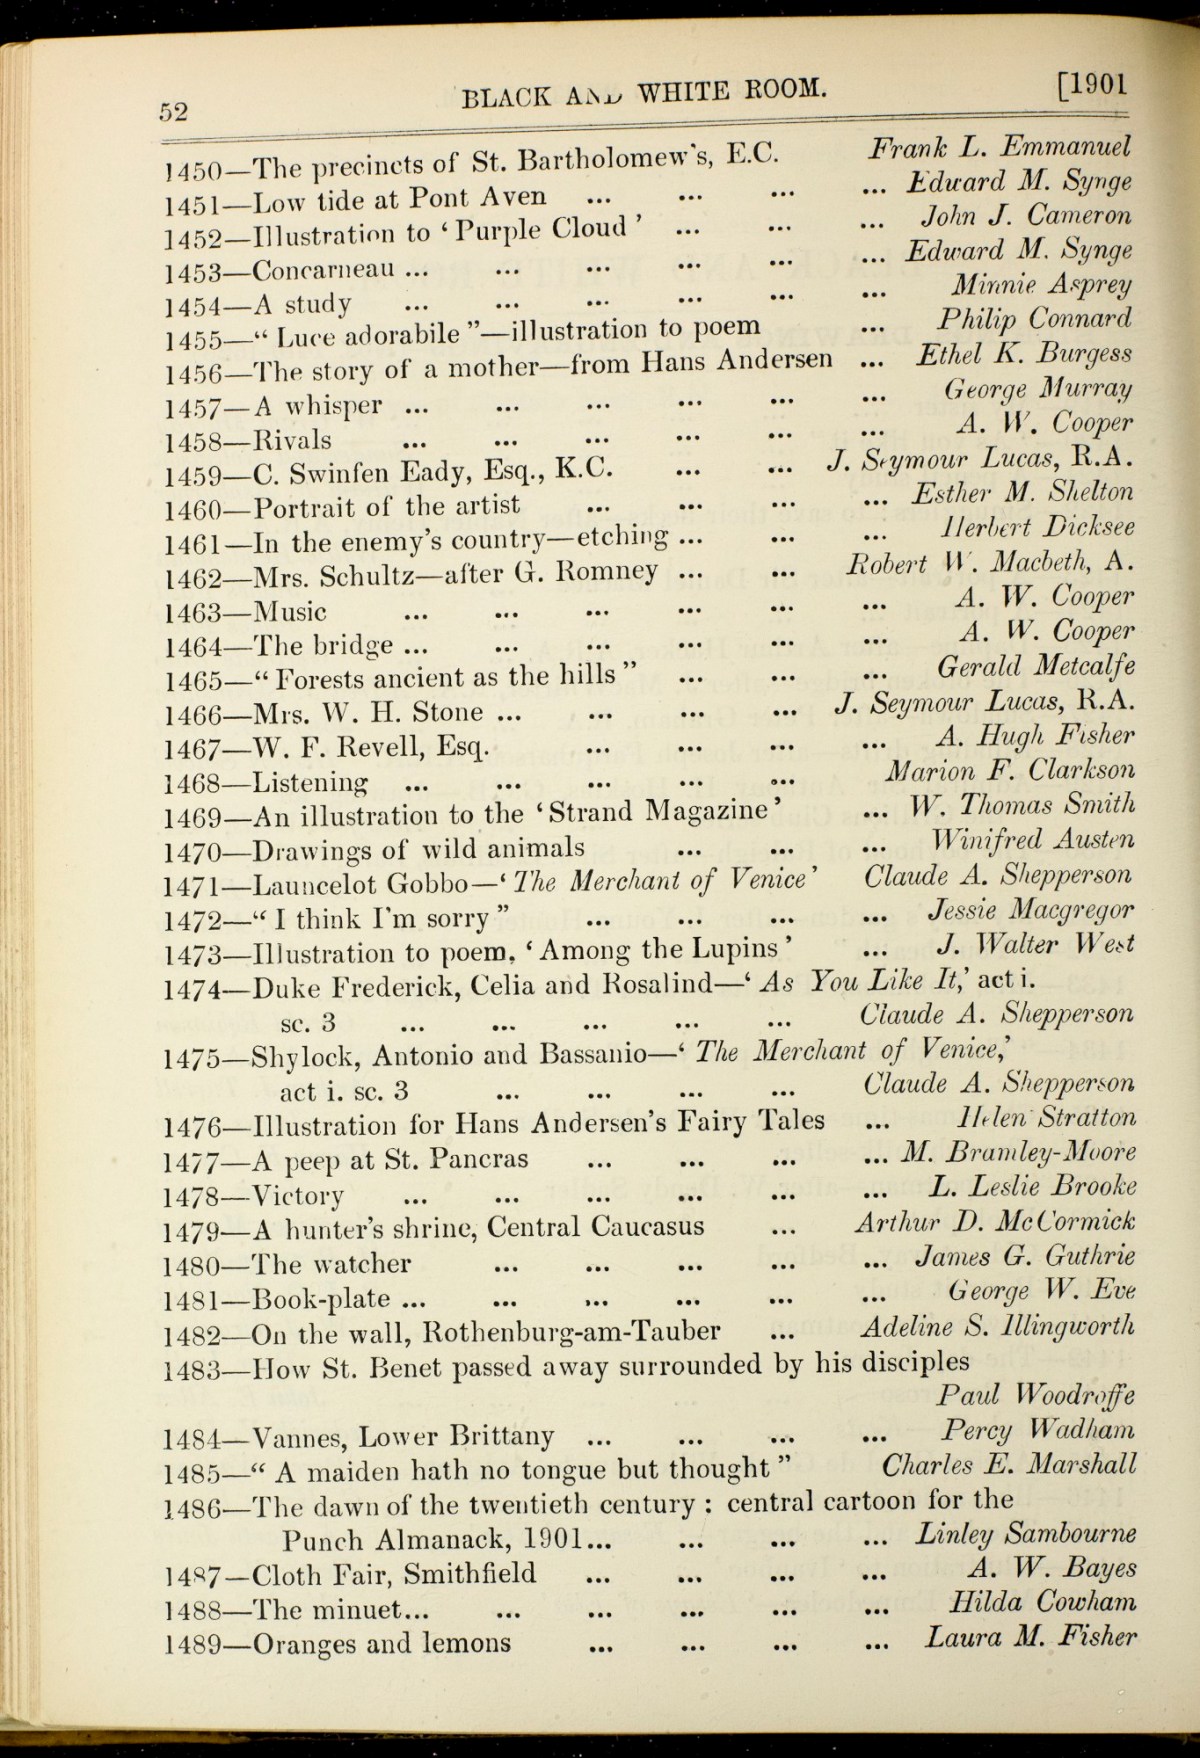 52 BLACK AND WHITE ROOM. [1901
1450—The precincts of St. Bartholomew's, E.C. Frank L. Emmanuel
1451—Low tide at Pont Aven ... ... ... ... Edward M. Synge
1452—Illustration to ‘Purple Cloud’ ... ... ... John J. Cameron
1453—Concarneau ... ... ... ... ... ... Edward M. Synge
1454—A study ... ... ... ... ... ... Minnie Asprey
1455—“Luce adorabile”—illustration to poem ... Philip Connard
1456—The story of a mother—from Hans Andersen ... Ethel K. Burgess
1457—A whisper ... ... ... ... ... ... George Murray
1458—Rivals ... ... ... ... ... ... A. W. Cooper
1459—C. Swinfen Eady, Esq., K.C. ... ... J. Seymour Lucas, R.A.
1460—Portrait of the artist ... ... ... ... Esther M. Shelton
1461—In the enemy's country—etching ... ... ... Herbert Dicksee
1462—Mrs. Schultz—after G. Romney ... ... Robert W. Macbeth, A.
1463—Music ... ... ... ... ... ... A. W. Cooper
1464—The bridge ... ... ... ... ... ... A. W. Cooper
1465—“Forests ancient as the hills” ... ... ... Gerald Metcalfe
1466—Mrs. W. H. Stone ... ... ... ... J. Seymour Lucas, R.A.
1467—W. F. Revell, Esq. ... ... ... ... A. Hugh Fisher
1468—Listening ... ... ... ... ... Marion F. Clarkson
1469—An illustration to the ‘Strand Magazine’ ... W. Thomas Smith
1470—Drawings of wild animals ... ... ... Winifred Austen
1471—Launcelot Gobbo—‘The Merchant of Venice’ Claude A. Shepperson
1472—“I think I'm sorry” ... ... ... ... Jessie Macgregor
1473—Illustration to poem, ‘Among the Lupins’ ... J. Walter West
1474—Duke Frederick, Celia and Rosalind—‘As You Like It,’ act i.
sc. 3 ... ... ... ... ... Claude A. Shepperson
1475—Shylock, Antonio and Bassanio—‘The Merchant of Venice,’
act i. sc. 3 ... ... ... ... Claude A. Shepperson
1476—Illustration for Hans Andersen's Fairy Tales ... Helen Stratton
1477—A peep at St. Pancras ... ... ... ... M. Bramley-Moore
1478—Victory ... ... ... ... ... ... L. Leslie Brooke
1479—A hunter's shrine, Central Caucasus ... Arthur D. McCormick
1480—The watcher ... ... ... ... ... James G. Guthrie
1481—Book-plate ... ... ... ... ... ... George W. Eve
1482—On the wall, Rothenburg-am-Tauber ... Adeline S. Illingworth
1483—How St. Benet passed away surrounded by his disciples
Paul Woodroffe
1484—Vannes, Lower Brittany ... ... ... ... Percy Wadham
1485—“A maiden hath no tongue but thought” Charles E. Marshall
1486—The dawn of the twentieth century : central cartoon for the
Punch Almanack, 1901... ... ... ... Linley Sambourne
1487—Cloth Fair, Smithfield ... ... ... ... A. W. Bayes
1488—The minuet... ... ... ... ... ... Hilda Cowham
1489—Oranges and lemons ... ... ... ... Laura M. Fisher